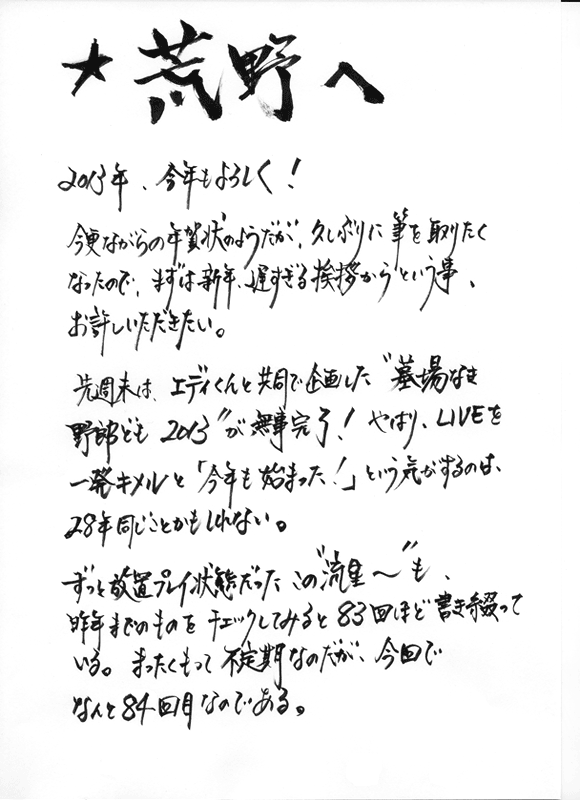 ★荒野へ
2013年、今年もよろしく！
今更ながらの年賀状のようだが、久しぶりに筆を取りたく
なったので、まずは新年、遅すぎる挨拶からという事、
お許しいただきたい。
先週末は、エディくんと共同で企画した“墓場なき
野郎ども 2013”が無事完了！やはり、LIVEを
一発キメルと「今年も始まった！」という気がするのは、
28年同じことかもしれない。
ずっと放置プレイ状態だったこの“流星〜”も、
昨年までのものをチェックしてみると83回ほど書き綴って
いる。まったくもって不定期なのだが、今回で
なんと84回目なのである。